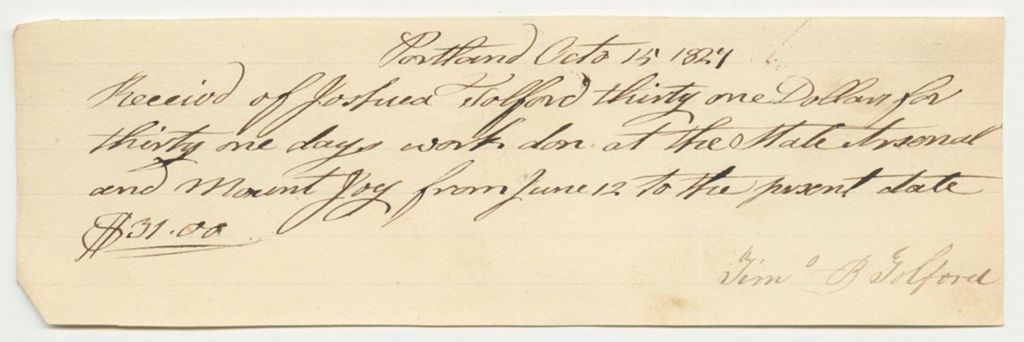 Portland Octo 15 1827
Receivd of Joshua Tolford thirty one Dollars for
thirty one days work don at the State Arsonal
and Mount Joy from June 12 to the presnt date
$31.00
Timo B Tolford